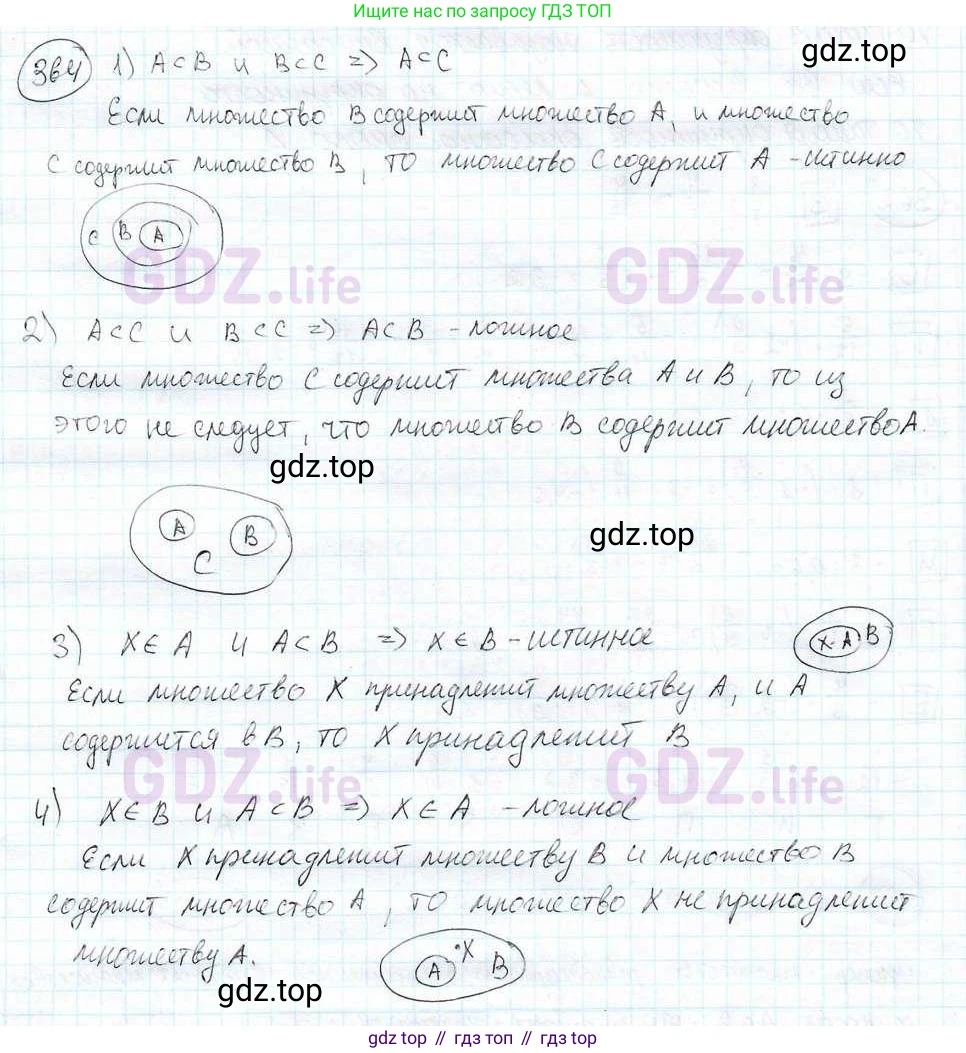 Ищите нас по запросу ГДЗ ТОП
gdz.top
364 1) A⊂B и B⊂C ⇒ A⊂C
Если множество B содержит множество A, и множество
C содержит множество B, то множество C содержит A - истинно
C B A
GDZ.life GDZ.life
2) A⊂C и B⊂C ⇒ A⊂B - ложное
Если множество C содержит множества A и B, то из
этого не следует, что множество B содержит множество A.
gdz.top
A B
C
gdz.top
3) X∈A и A⊂B ⇒ X∈B - истинное
X. A B
Если множество X принадлежит множеству A, и A
содержится в B, то X принадлежит B
GDZ.life GDZ.life
4) X∈B и A⊂B ⇒ X∈A - ложное
Если X принадлежит множеству B и множество B
содержит множество A, то множество X не принадлежит
множеству A.
A X B
gdz.top
gdz top // гдз топ // gdz top